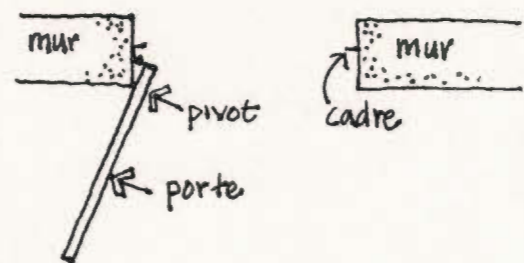 mur
mur
pivot
cadre
porte